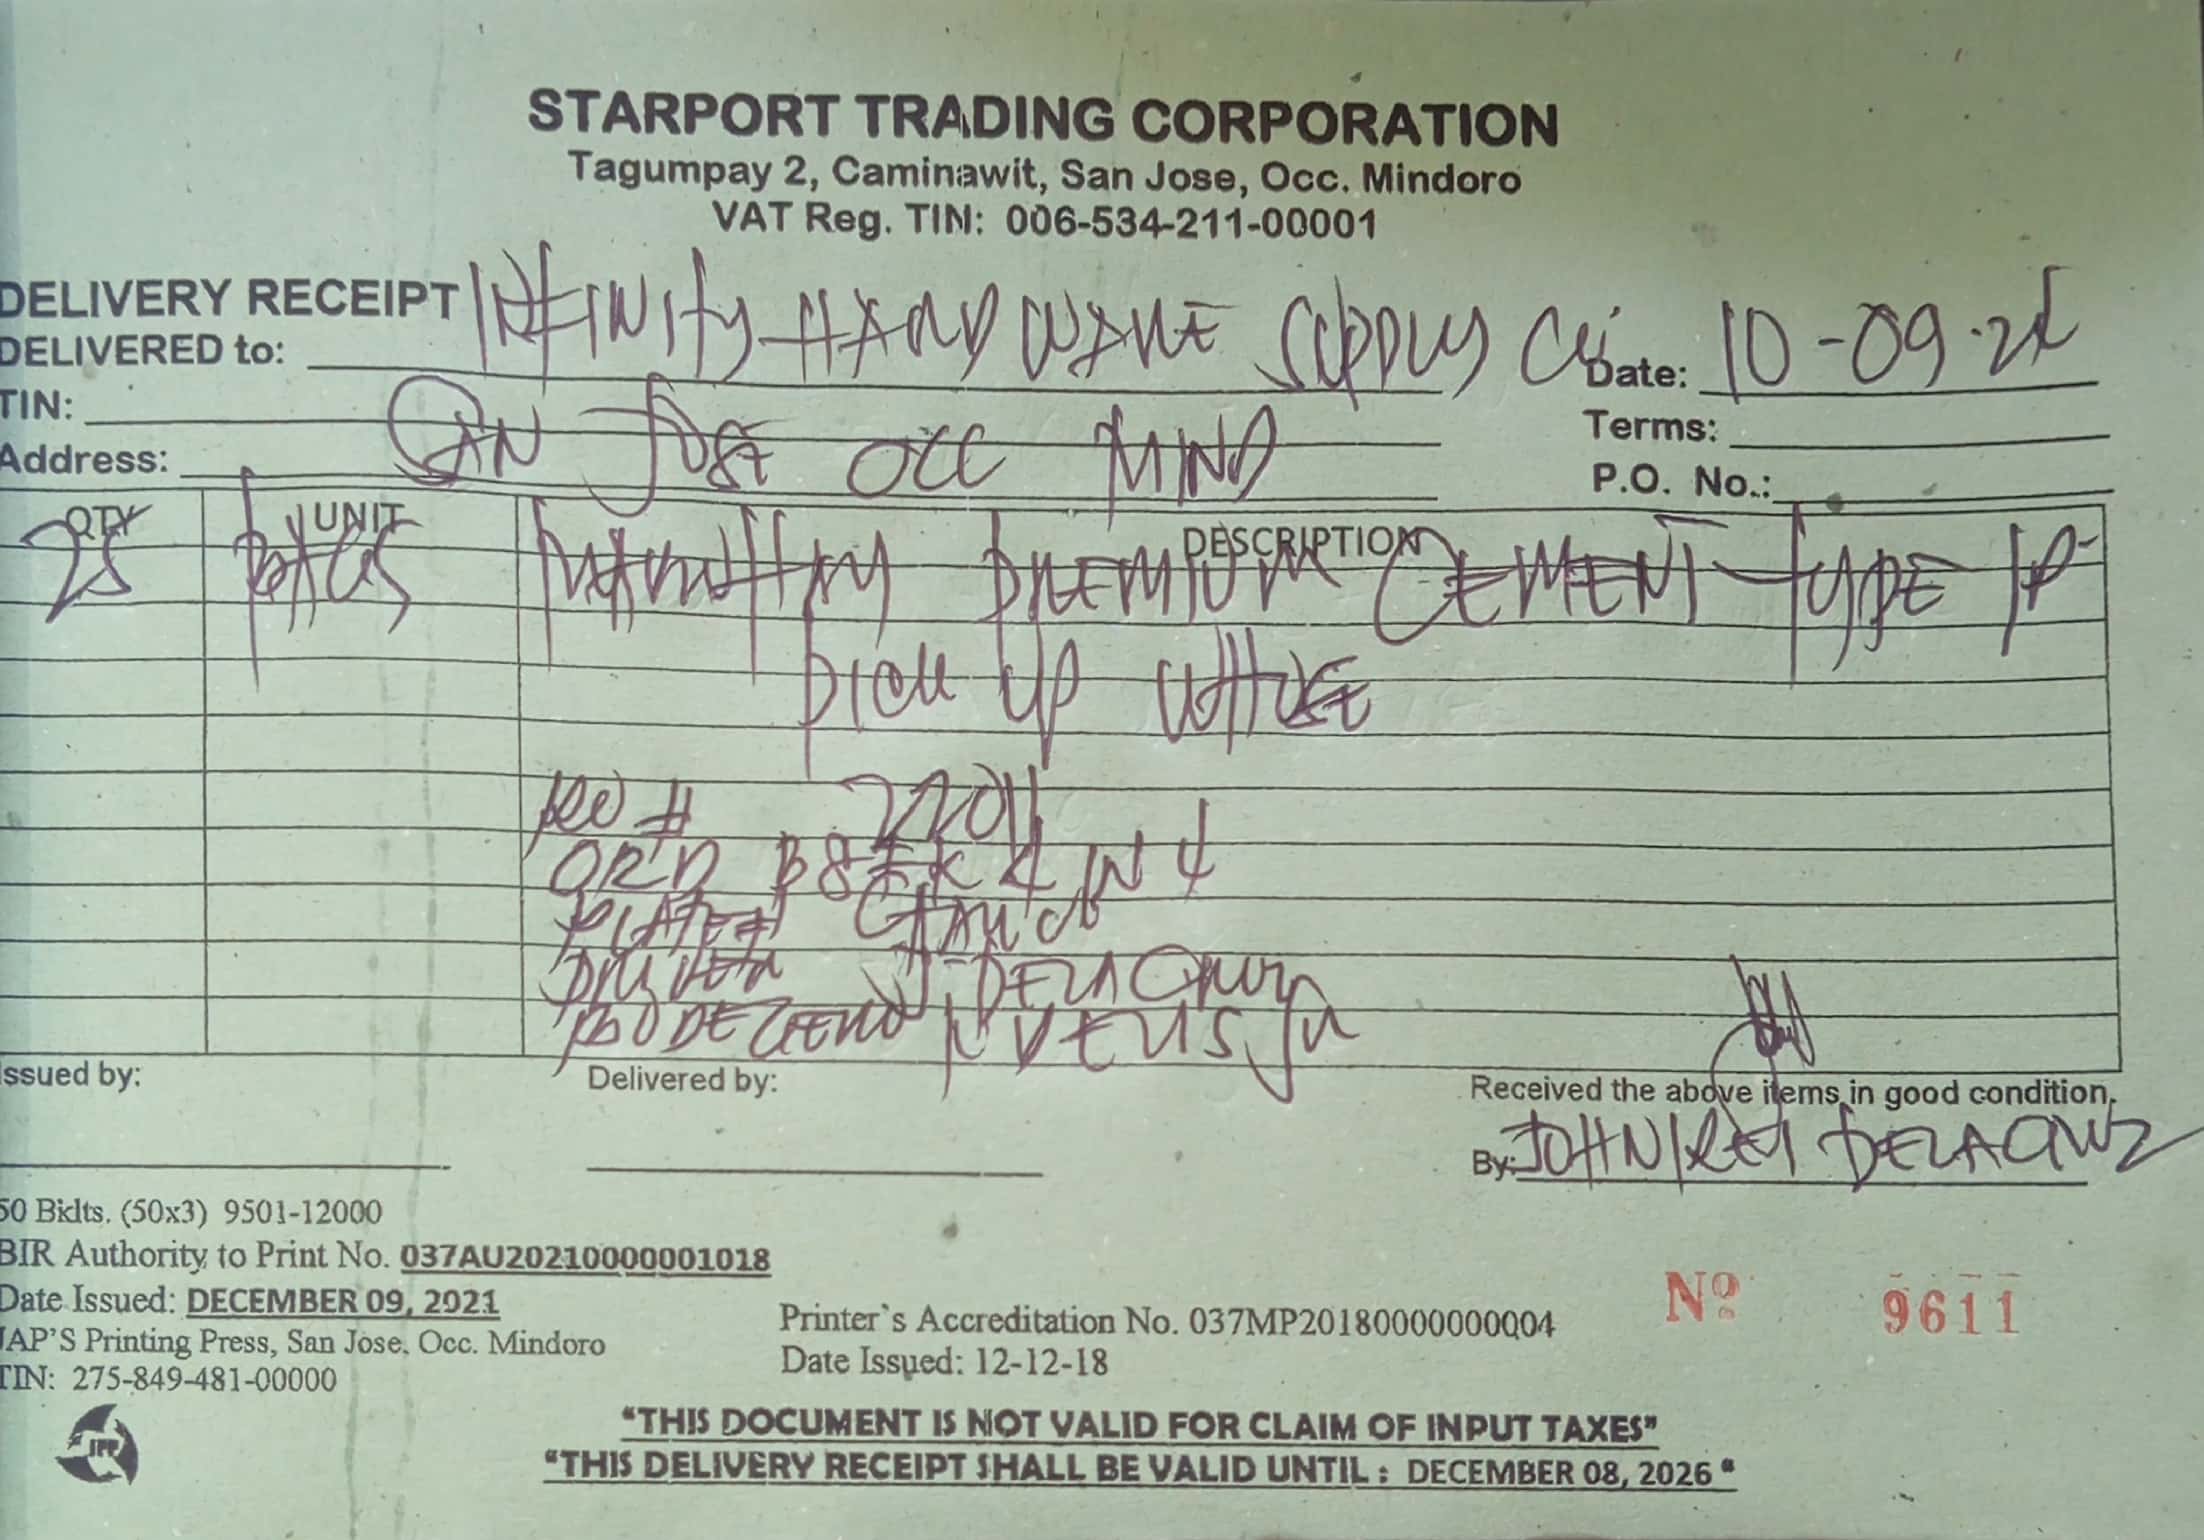 STARPORT TRADING CORPORATION
Tagumpay 2, Caminawit, San Jose, Occ. Mindoro
VAT Reg. TIN: 006-534-211-00001
DELIVERY RECEIPT
DELIVERED to: INFINITY HARDWARE SUPPLY Date: 10-09-
TIN: Terms:
Address: SAN JOSE OCC MIND P.O. No.:
QTY UNIT DESCRIPTION
25 BAGS PREMIUM CEMENT TYPE 1P
PICK UP WHSE
# 2204
ORD
PLATE#
DRIVER J DELACRUZ
BODEGERO
Issued by: Delivered by: Received the above items in good condition.
By: JOHN REY DELACRUZ
50 Bklts. (50x3) 9501-12000
BIR Authority to Print No. 037AU20210000001018
Date Issued: DECEMBER 09, 2021
JAP'S Printing Press, San Jose, Occ. Mindoro
TIN: 275-849-481-00000
Printer's Accreditation No. 037MP20180000000004
Date Issued: 12-12-18
No 9611
JPP
"THIS DOCUMENT IS NOT VALID FOR CLAIM OF INPUT TAXES"
"THIS DELIVERY RECEIPT SHALL BE VALID UNTIL : DECEMBER 08, 2026 "